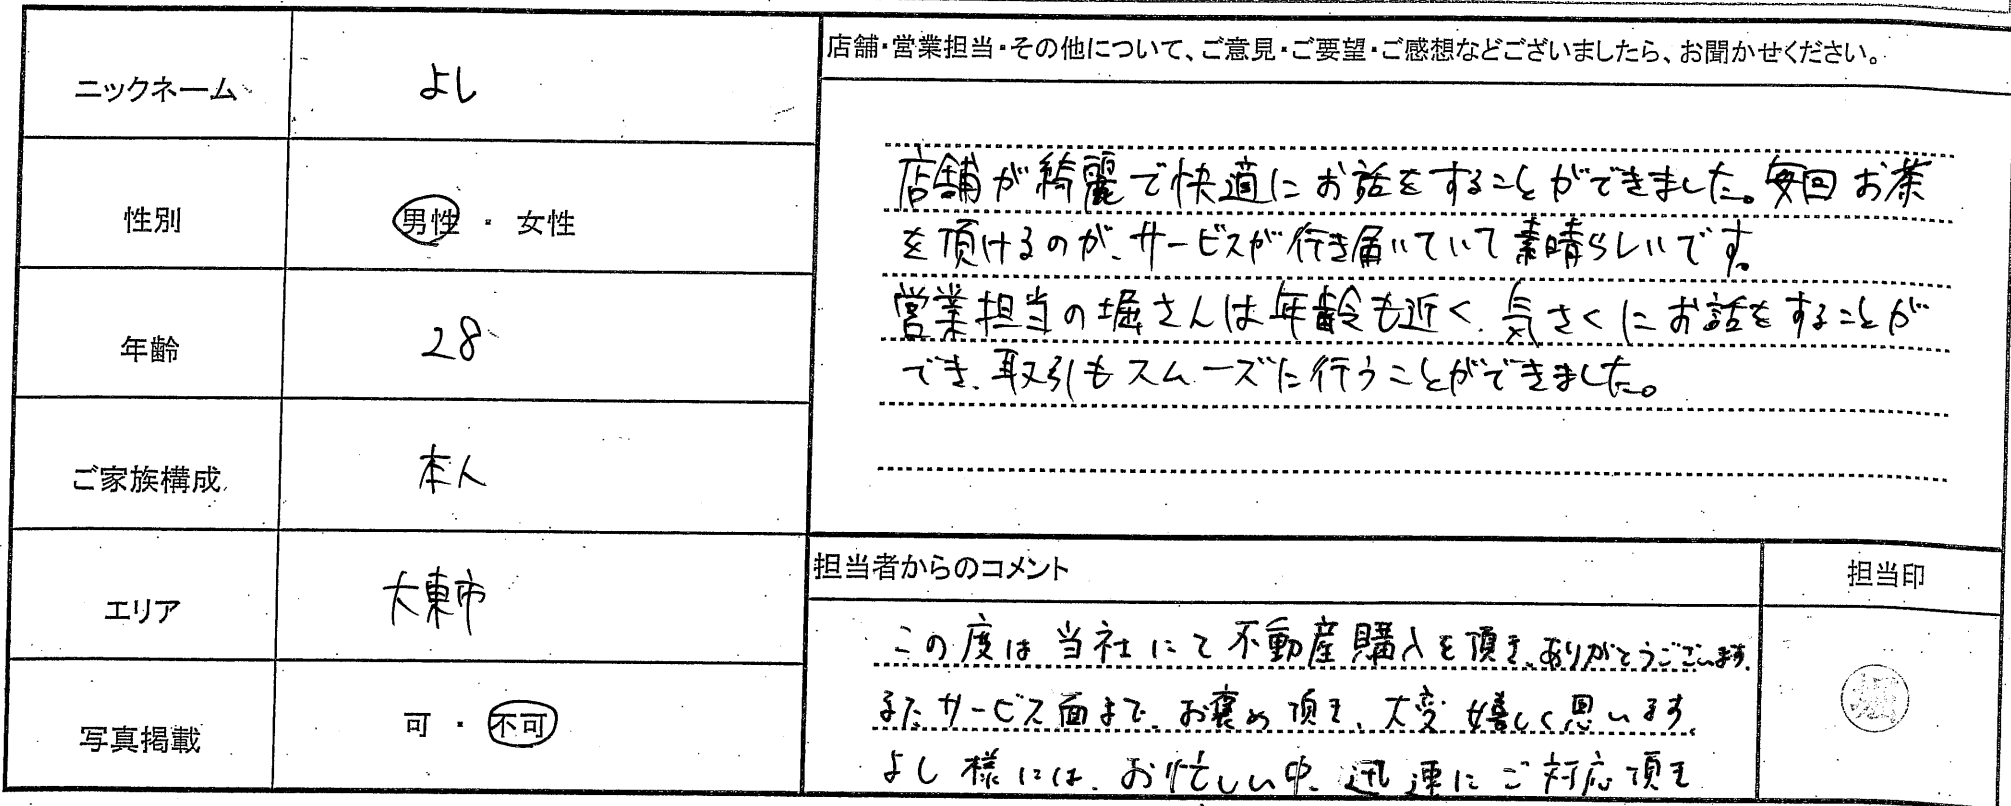 ニックネーム
よし
性別
男性・女性
年齢
28
ご家族構成
本人
エリア
大東市
写真掲載
可・不可
店舗・営業担当・その他について、ご意見・ご要望・ご感想などございましたら、お聞かせください。
店舗が綺麗で快適にお話をすることができました。毎回お茶
を頂けるのが、サービスが行き届いていて素晴らしいです。
営業担当の堀さんは年齢も近く、気さくにお話をすることが
でき、取引もスムーズに行うことができました。
担当者からのコメント
この度は当社にて不動産購入を頂き、ありがとうございます。
またサービス面まで、お褒め頂き、大変嬉しく思います。
よし様には、お忙しい中、迅速にご対応頂き
担当印
堀